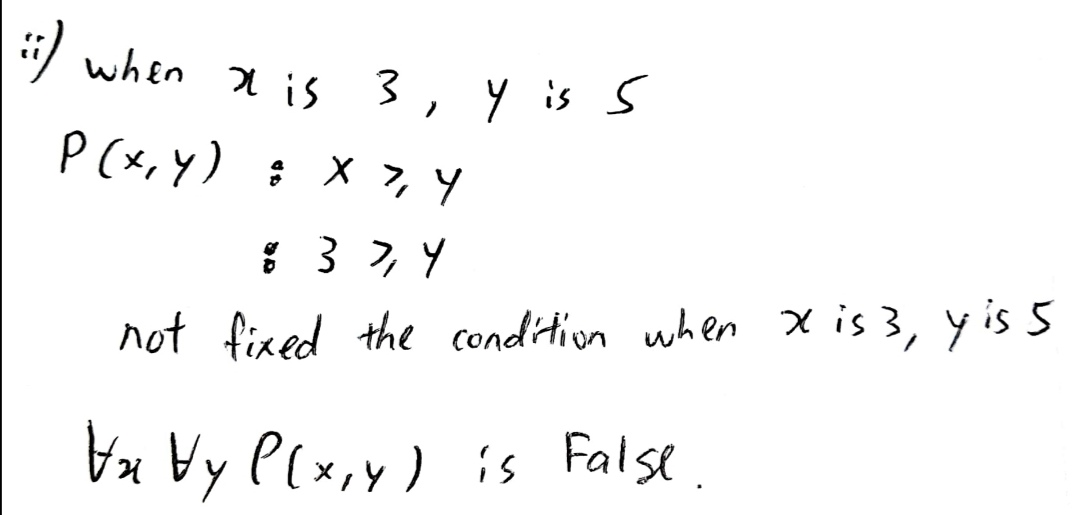 ii) when x is 3, y is 5
P(x,y) : x ≥ y
: 3 ≥ y
not fixed the condition when x is 3, y is 5
∀x ∀y P(x,y) is False.